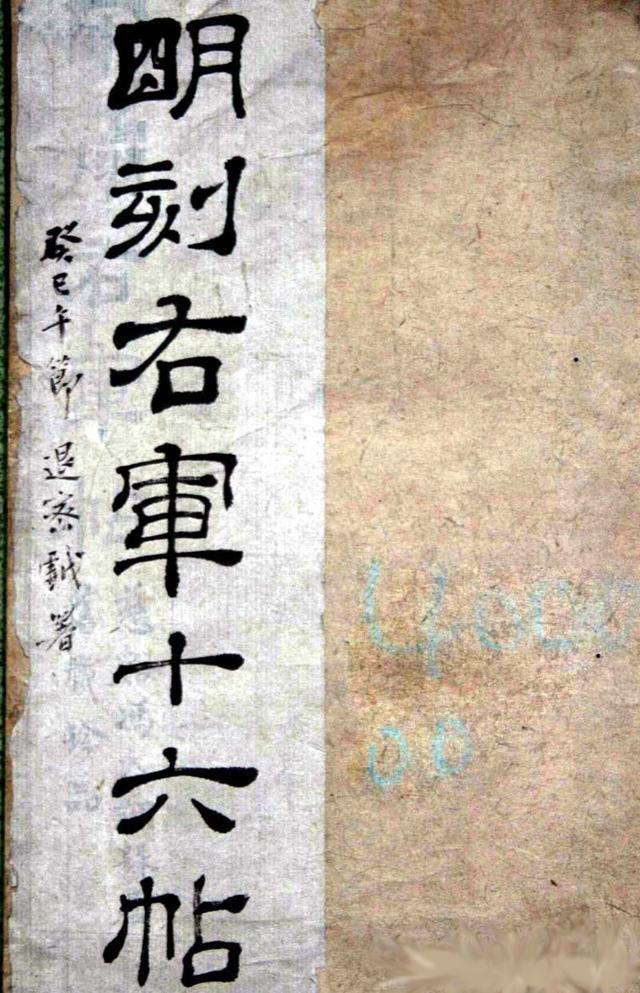 朙刻右軍十六帖
癸巳午節 退密 署
4000
00